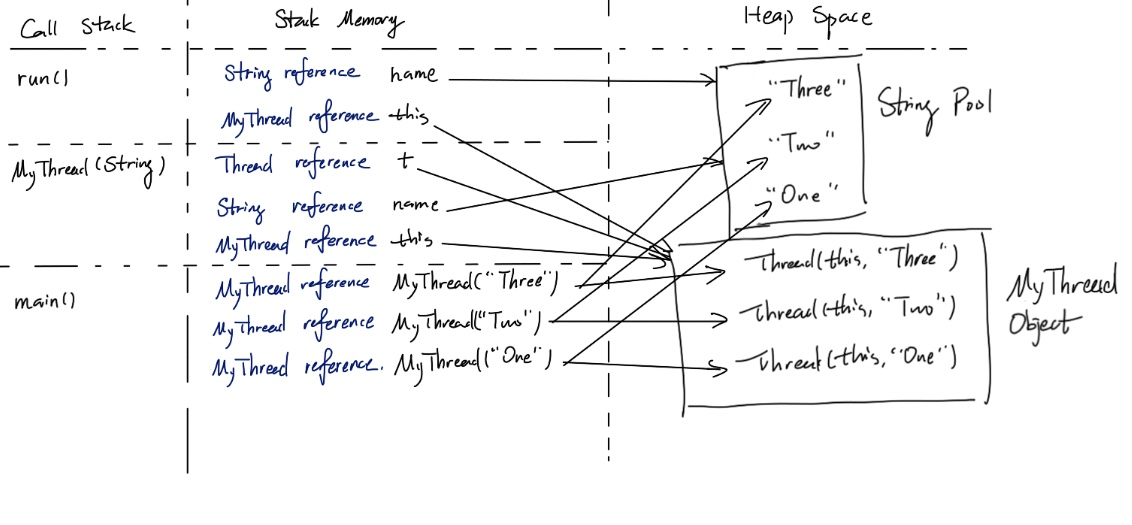 Call Stack
Stack Memory
Heap Space
run()
String reference name
MyThread reference this
"Three"
"Two"
"One"
String Pool
MyThread(String)
Thread reference t
String reference name
MyThread reference this
main()
MyThread reference MyThread("Three")
MyThread reference MyThread("Two")
MyThread reference. MyThread("One")
Thread(this, "Three")
Thread(this, "Two")
Thread(this, "One")
MyThread
Object